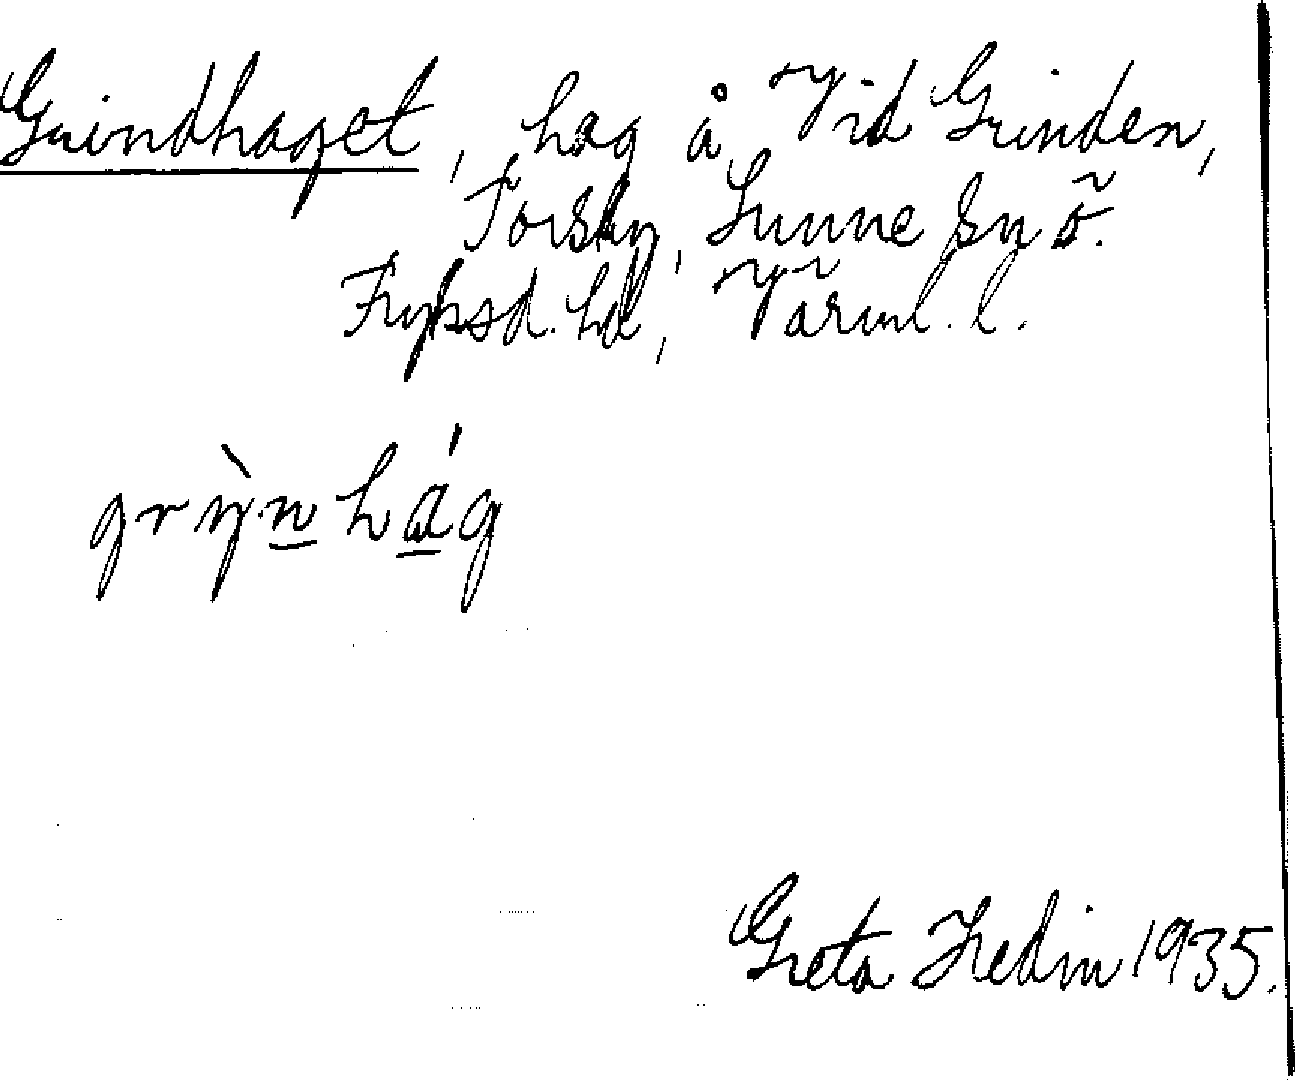 Grindhaget, hag å Vid Grinden,
Forsby, Sunne sn ö.
Fryksd. hd, Värml. l.
grỳn hág
Greta Hedin 1935.